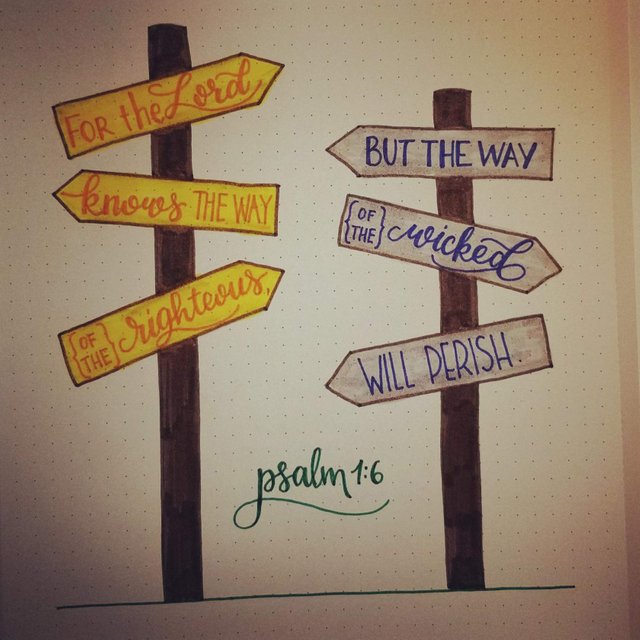 FOR the Lord
knows THE WAY
{OF THE} righteous,
BUT THE WAY
{OF THE} wicked
WILL PERISH.
psalm 1:6